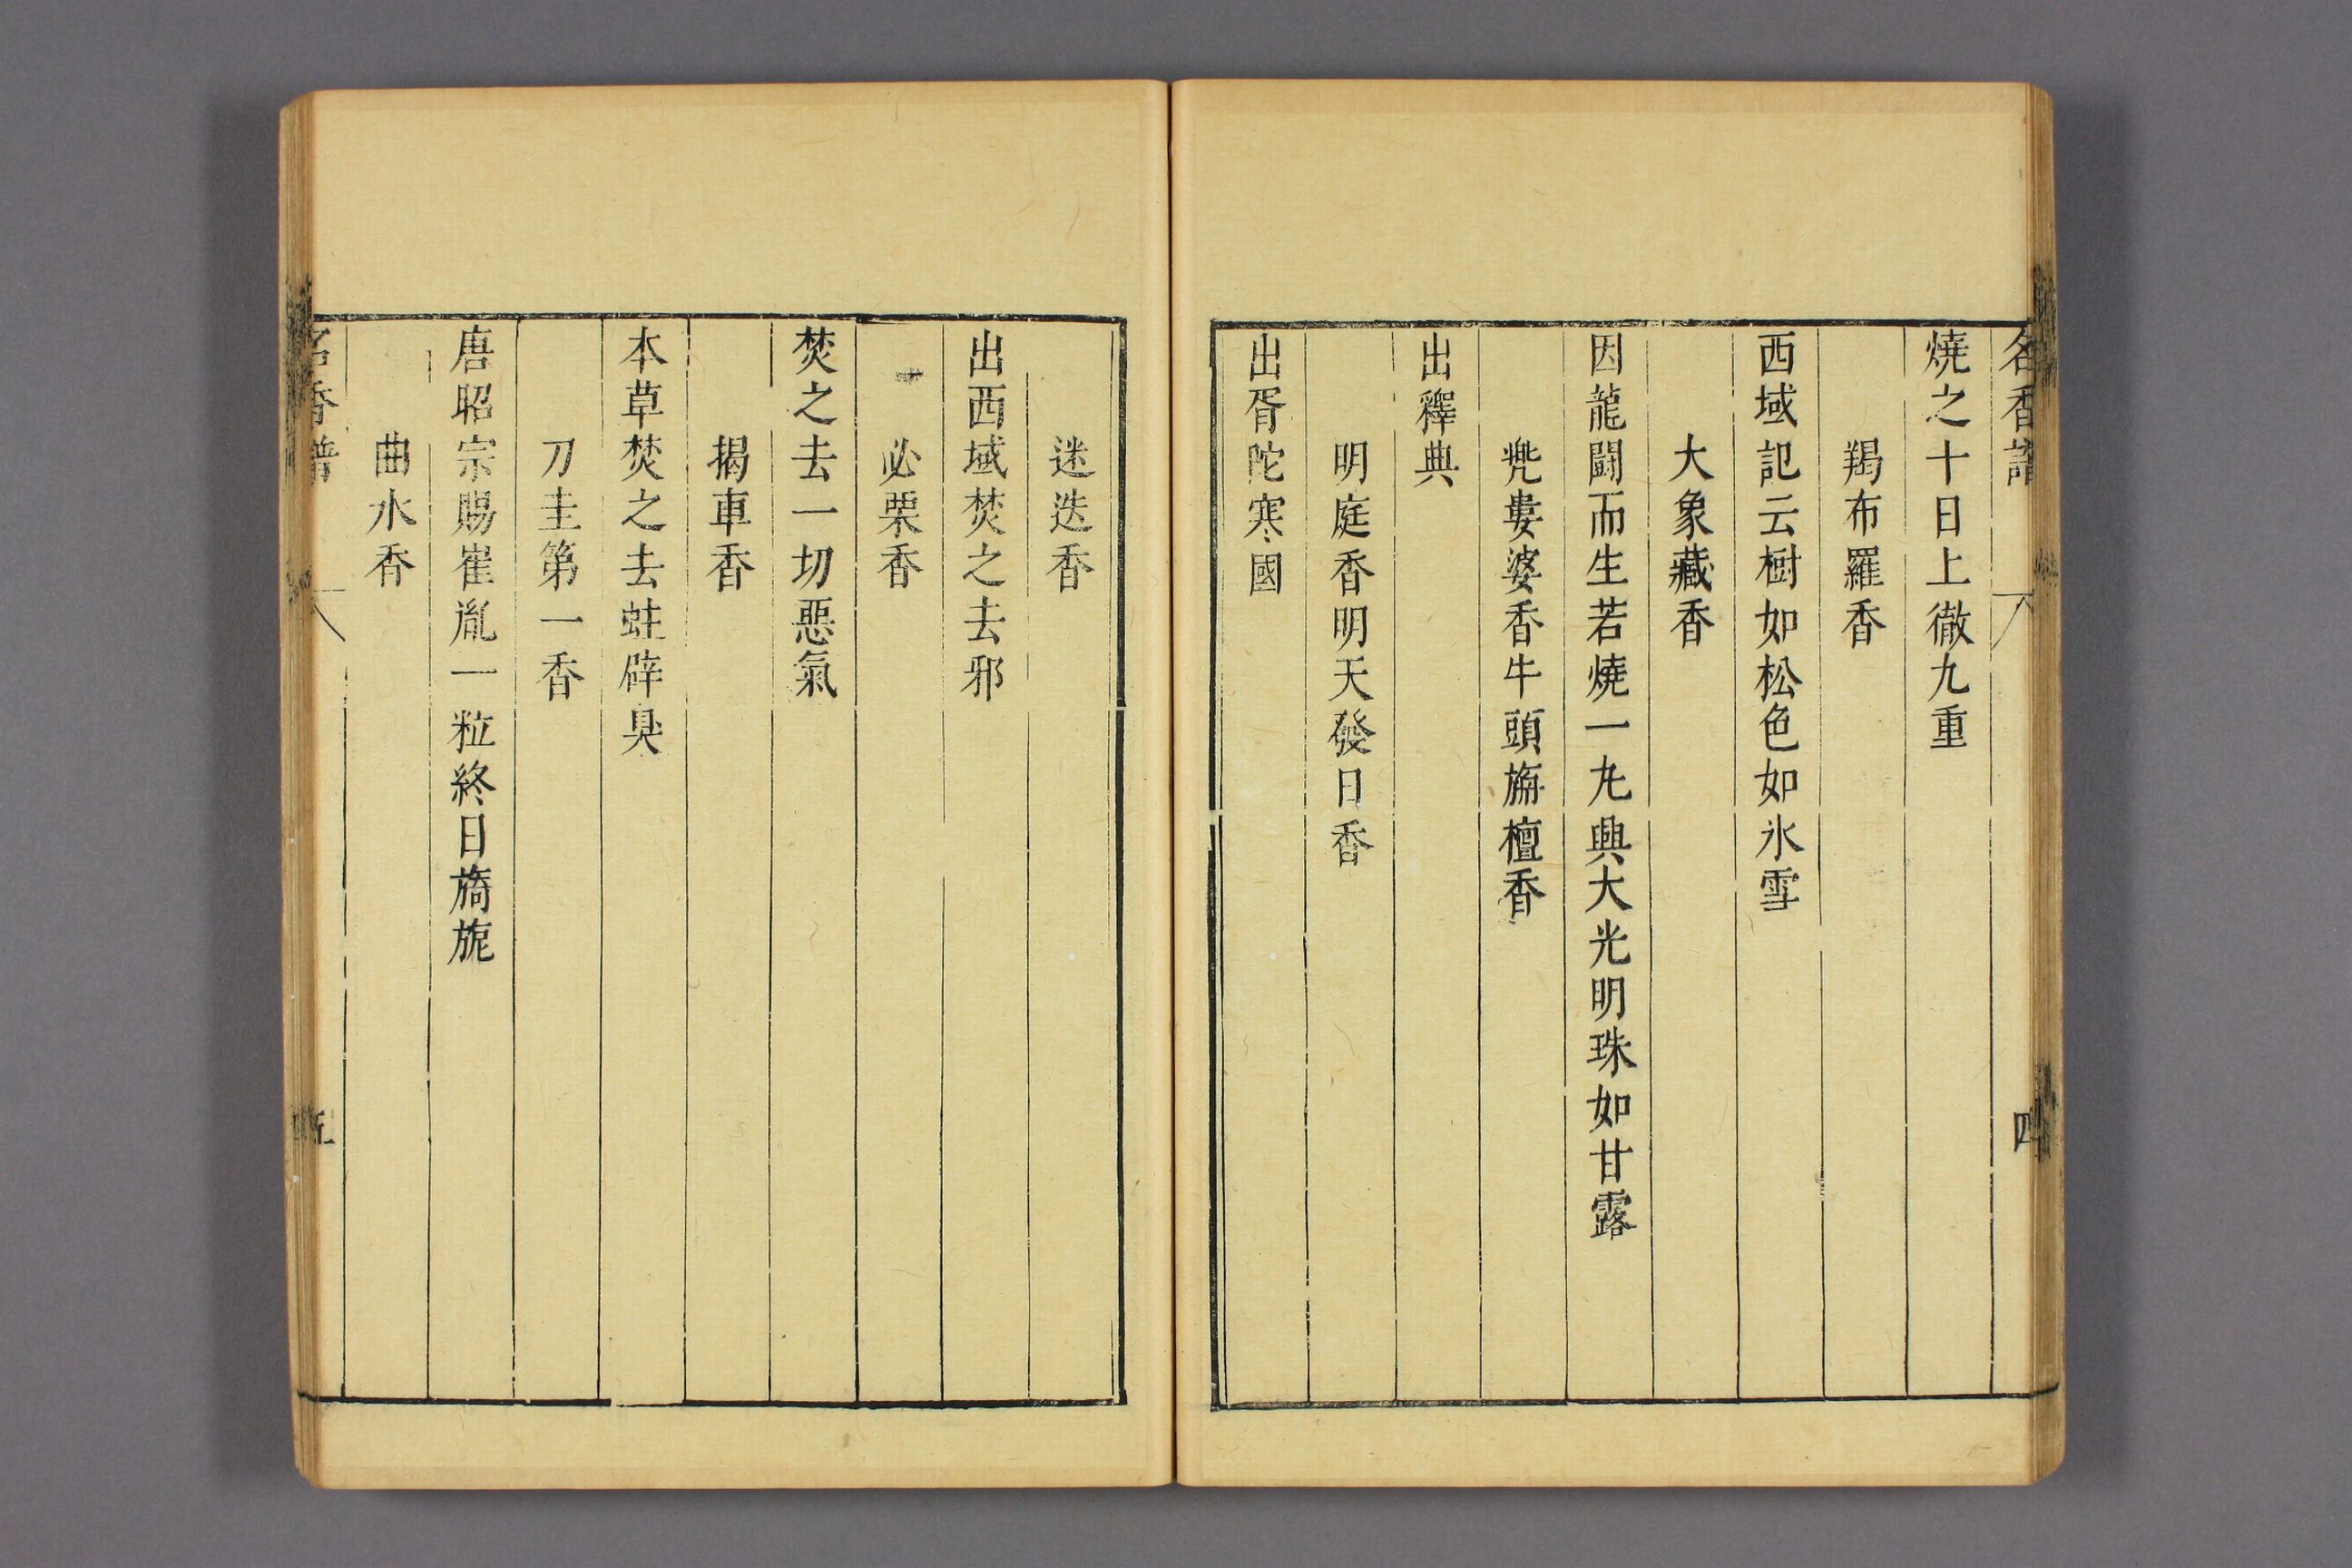 名香譜
四
燒之十日上徹九重
羯布羅香
西域記云樹如松色如氷雪
大象藏香
因龍鬪而生若燒一九興大光明珠如甘露
兠婁婆香牛頭旃檀香
出釋典
明庭香明天發日香
出胥陀寒國
迷迭香
出西域焚之去邪
必栗香
焚之去一切惡氣
揭車香
本草焚之去蛀辟臭
刀圭第一香
唐昭宗賜崔胤一粒終日旖旎
曲水香
名香譜
五